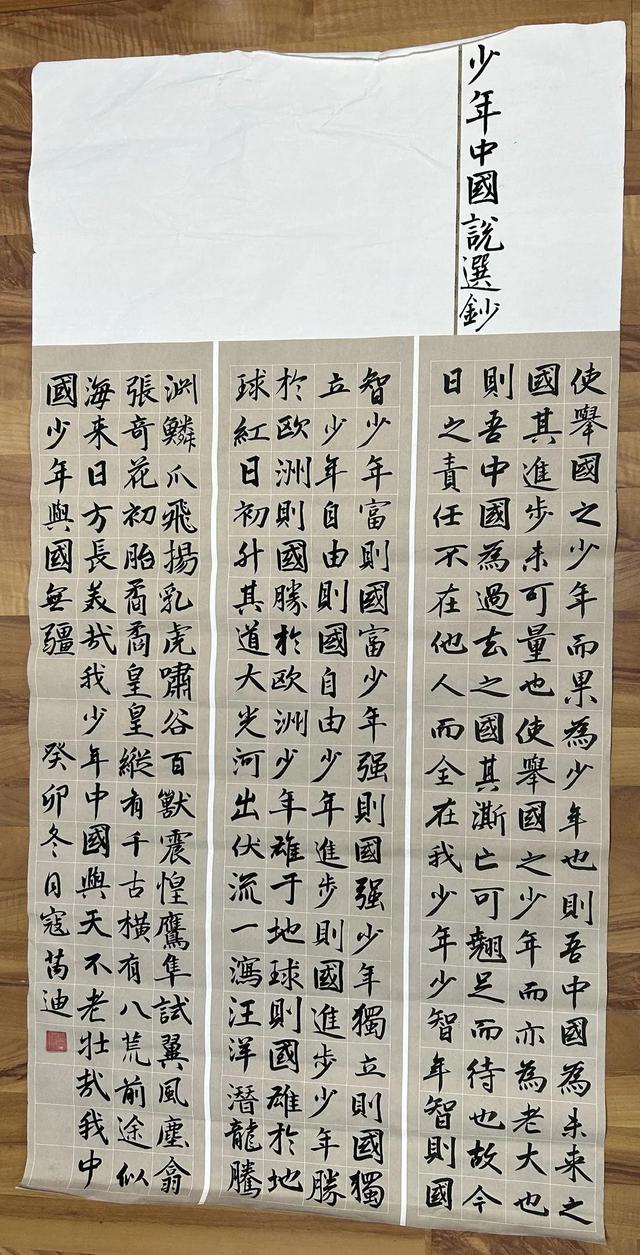 少年中國說選鈔
使舉國之少年而果為少年也則吾中國為未来之
國其進步未可量也使舉國之少年而亦為老大也
則吾中國為過去之國其澌亡可翹足而待也故今
日之責任不在他人而全在我少年少智年智則國
智少年富則國富少年强則國强少年獨立則國獨
立少年自由則國自由少年進步則國進步少年勝
於欧洲則國勝於欧洲少年雄于地球則國雄於地
球紅日初升其道大光河出伏流一瀉汪洋潛龍騰
渊鱗爪飛揚乳虎嘯谷百獸震惶鷹隼試翼風塵翕
張奇花初胎矞矞皇皇縱有千古橫有八荒前途似
海来日方長美哉我少年中國與天不老壮哉我中
國少年與國無疆 癸卯冬日寇芮迪